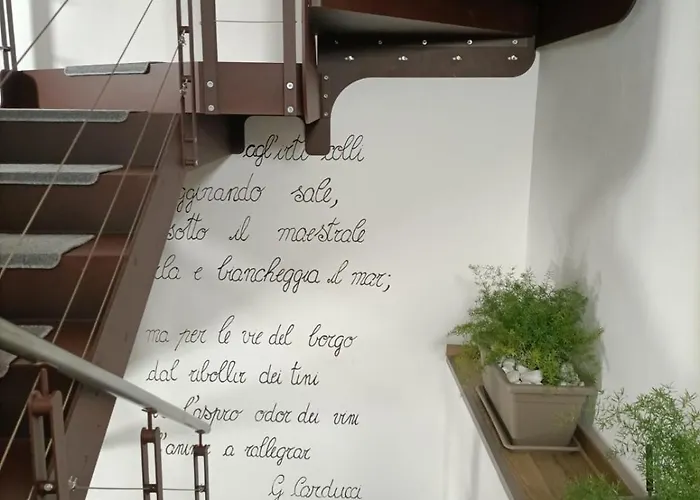 agl'irti colli
ggirando sale,
sotto il maestrale
rla e biancheggia il mar;
ma per le vie del borgo
dal ribollir dei tini
l'aspro odor dei vini
l'anime a rallegrar
G Carducci